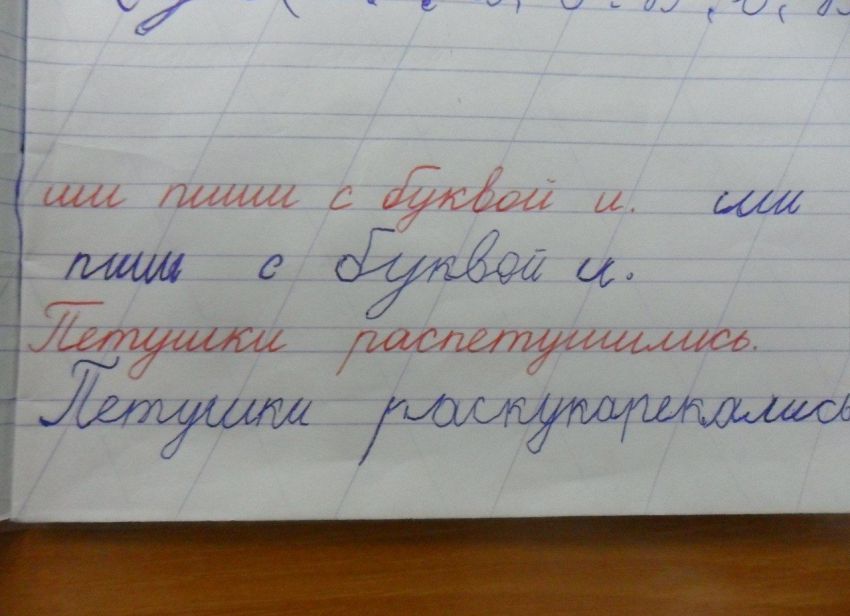 ши пиши с буквой и. ши
пиши с буквой и.
Петушки распетушились.
Петушки раскукарекались